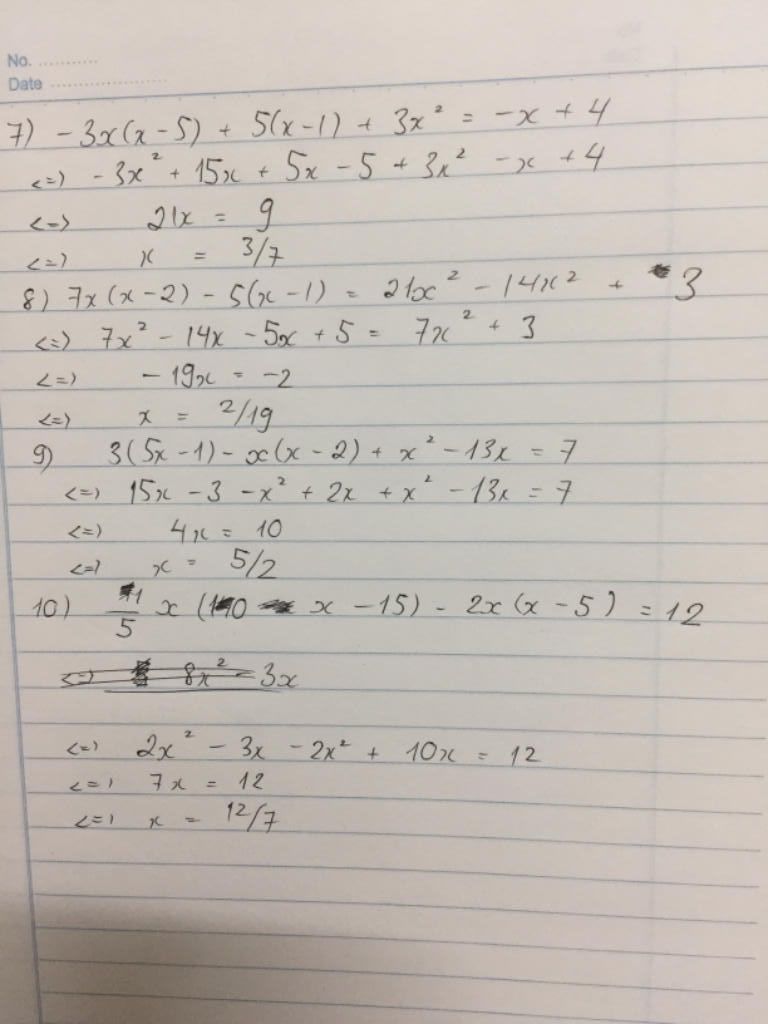 No. ...........
Date ........................
7) -3x(x-5) + 5(x-1) + 3x² = -x + 4
<=> -3x² + 15x + 5x - 5 + 3x² - x + 4
<=> 21x = 9
<=> x = 3/7
8) 7x(x-2) - 5(x-1) = 21x² - 14x² + 3
<=> 7x² - 14x - 5x + 5 = 7x² + 3
<=> -19x = -2
<=> x = 2/19
9) 3(5x-1) - x(x-2) + x² - 13x = 7
<=> 15x - 3 - x² + 2x + x² - 13x = 7
<=> 4x = 10
<=> x = 5/2
10) 1/5 x (10 x - 15) - 2x(x-5) = 12
<=> 8x² - 3x
<=> 2x² - 3x - 2x² + 10x = 12
<=> 7x = 12
<=> x = 12/7